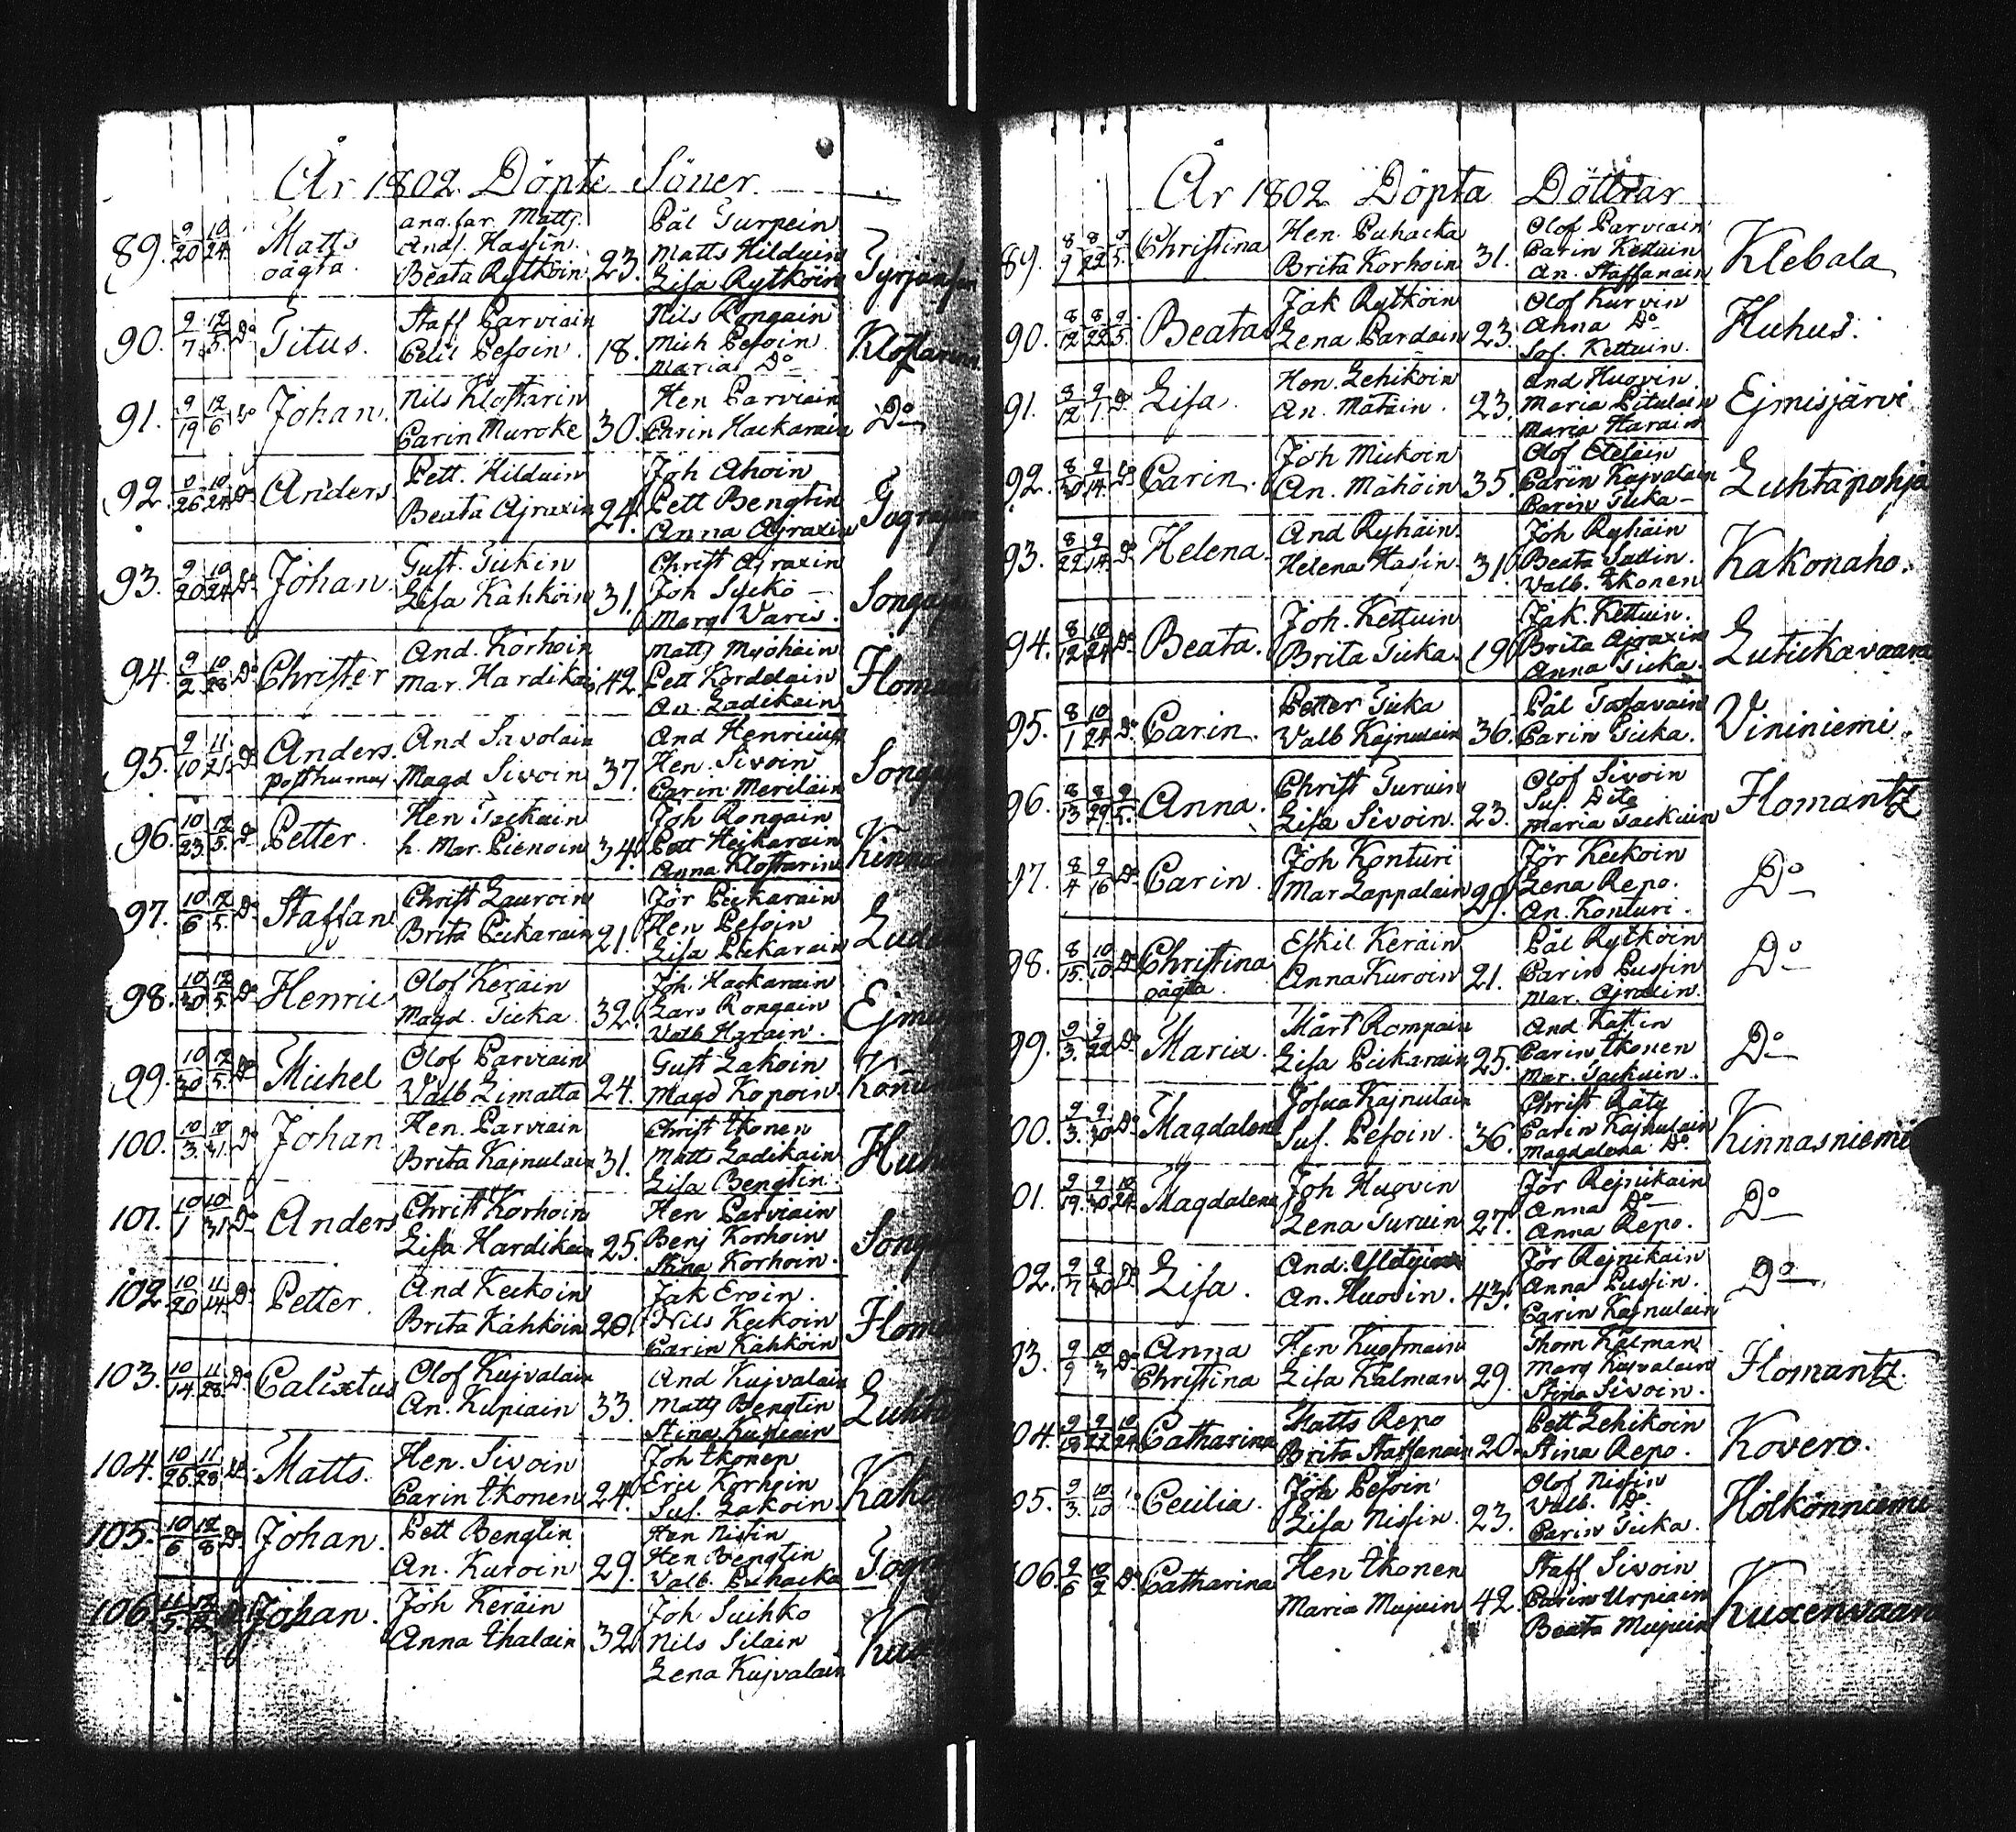 År 1802 Döpte Söner
89. 9/20 10/24 Matts oägta. ang. far. Matts
And. Hassin. Beata Rytköin 23. Pål Turpein
Matts Hilduin
Lisa Rytköin
90. 9/7 12/5 Do Titus. Staff Parviain
Celil Pesoin. 18. Nils Rongain
Mich Pesoin
Maria Do
91. 9/19 12/6 Do Johan. Nils Klostarin
Carin Muroke 30. Hen Parviain
Carin Hackarain
Do
92. 9/26 10/24 Do Anders Pett. Hilduin
Beata Ajraxin 24. Joh Ahoin
Pett Bengtin
Anna Ajraxin
93. 9/20 10/24 Do Johan. Gust. Tukin
Lisa Kähköin 31. Christ Ajraxin
Joh Sycko
Marg Varis.
94. 9/2 10/28 Do Christer And. Korhoin
Mar. Hardikai 42. Matts Myöhäin
Pett Kordelain
An. Ladikain
95. 9/10 11/21 Do Anders posthumus And Savolain
Magd Sivoin 37. And Henricius
Hen. Sivoin
Carin Meriläin
96. 10/23 12/5 Do Petter. Hen Tackuin
h. Mar. Pienoin 34. Joh Rongain
Pett Hejkarain
Anna Klostarin
97. 10/6 12/5 Do Staffan Christ Lauroin
Brita Pickarain 21. Jör Pickarain
Hen Pesoin
Lisa Pickarain
98. 10/30 12/5 Do Henric Olof Keräin
Magd. Ticka 32. Joh. Hackarain
Lars Rongain
Valb Harain.
99. 10/30 12/5 Do Michel Olof Parviain
Valb Limatta 24. Gust Lakoin
Magd Kopoin.
100. 10/3 10/31 Do Johan Hen. Parviain
Brita Kajnulain 31. Christ Ikonen
Matts Ladikain
Lisa Bengtin
101. 10/1 10/31 Do Anders Christ Korhoin
Lisa Hardikain 25. Hen Parviain
Benj Korhoin
Stina Korhoin.
102. 10/20 11/14 Do Petter. And Keckoin
Brita Kähköin 20. Jak Eroin.
Nils Keckoin
Carin Kähköin
103. 10/14 11/28 Do Calixtus Olof Kujvalain
An. Kupiain 33. And Kujvalain
Matts Bengtin
Stina Kupiain
104. 10/26 11/28 Do Matts. Hen. Sivoin
Carin Ikonen 24. Joh Ikonen
Eric Korhoin
Sus. Lakoin
105. 10/6 12/8 Do Johan. Pett Bengtin
An. Kuroin 29. Han Nissin
Hen Bengtin
Valb. Puhacka
106. Johan. Joh Keräin
Anna Ihalain 32. Joh Suihko
Nils Silain
Lena Kujvalain
År 1802 Döpta Döttrar
89. 8/9 8/22 9/5 Christina Hen. Puhacka
Brita Korhoin 31. Olof Parviain
Carin Kettuin
An. Staffanain
Klebala
90. 8/12 8/22 9/5 Beata Jak Rytköin
Lena Pardain 23. Olof Kurvin
Anna Do
Sof. Kettuin.
Huhus.
91. 8/12 9/1 Do Lisa. Hen. Lehikoin
An. Mätäin. 23. And Huovin.
Maria Pitulain
Maria Harain
Ejmisjärvi
92. 8/30 9/14 Do Carin. Joh Mickoin
An. Mähöin 35. Olof Oteläin
Carin Kajvalain
Carin Ticka
Luhtapohja
93. 8/22 9/14 Do Helena. And Ryhäin.
Helena Hasin. 31. Joh Ryhäin
Beata Sallin.
Valb. Ikonen
Kakonaho.
94. 8/12 10/24 Do Beata. Joh. Kettuin
Brita Ticka. 19. Jak. Kettuin.
Brita Ajraxin
Anna Ticka.
Lutickavaara
95. 8/1 10/24 Do Carin. Petter Ticka
Valb Kajnulain 36. Pål Tossavain
Carin Ticka.
Vininiemi.
96. 8/13 8/29 9/5 Anna. Christ Turuin
Lisa Sivoin. 23. Olof Sivoin
Sus. Dito
Maria Tackuin
Ilomantz
97. 8/4 9/16 Do Carin. Joh Konturi
Mar Lappalain 29. Jör Keckoin
Lena Repo.
An. Konturi.
Do
98. 8/15 10/10 Do Christina oägta. Eskil Keräin
Anna Kuroin 21. Pål Rytköin
Carin Pussin
Mar. Ajraxin.
Do
99. 9/3 9/22 Do Maria. Märt Rompain
Lisa Pickarain 25. And. Kastin
Carin Ikonen
Mar. Tackuin.
Do
100. 9/3 9/30 Do Magdalena Josua Kajnulain
Sus. Pesoin. 36. Christ Räty
Carin Kajnulain
Magdalena Do
Kinnasniemi
101. 9/19 9/30 10/24 Magdalena Joh Huovin
Lena Turuin 27. Jör Rejnikain
Anna Do
Anna Repo.
Do
102. 9/7 9/30 Do Lisa. And.
An. Huovin. 43. Jör Rejnikain
Anna Pussin.
Carin Kajnulain
Do
103. 9/9 10/3 Do Anna Christina Hen Kuosmain
Lisa Kalman 29. Thom Kalman
Marg Kujvalain
Stina Sivoin.
Ilomantz.
104. 9/18 9/22 10/24 Catharina Matts Repo
Brita Staffanain 20. Pett Lehikoin
Stina Repo.
Kovero.
105. 9/3 10/10 Cecilia. Joh Pesoin
Lisa Nissin. 23. Olof Nissin
Valb. Do
Carin Ticka.
Hölkönniemi
106. 9/6 10/2 Do Catharina Hen Ikonen
Maria Mujuin 42. Staff Sivoin
Carin Urpiain
Beata Mujuin
Kuxenvaara